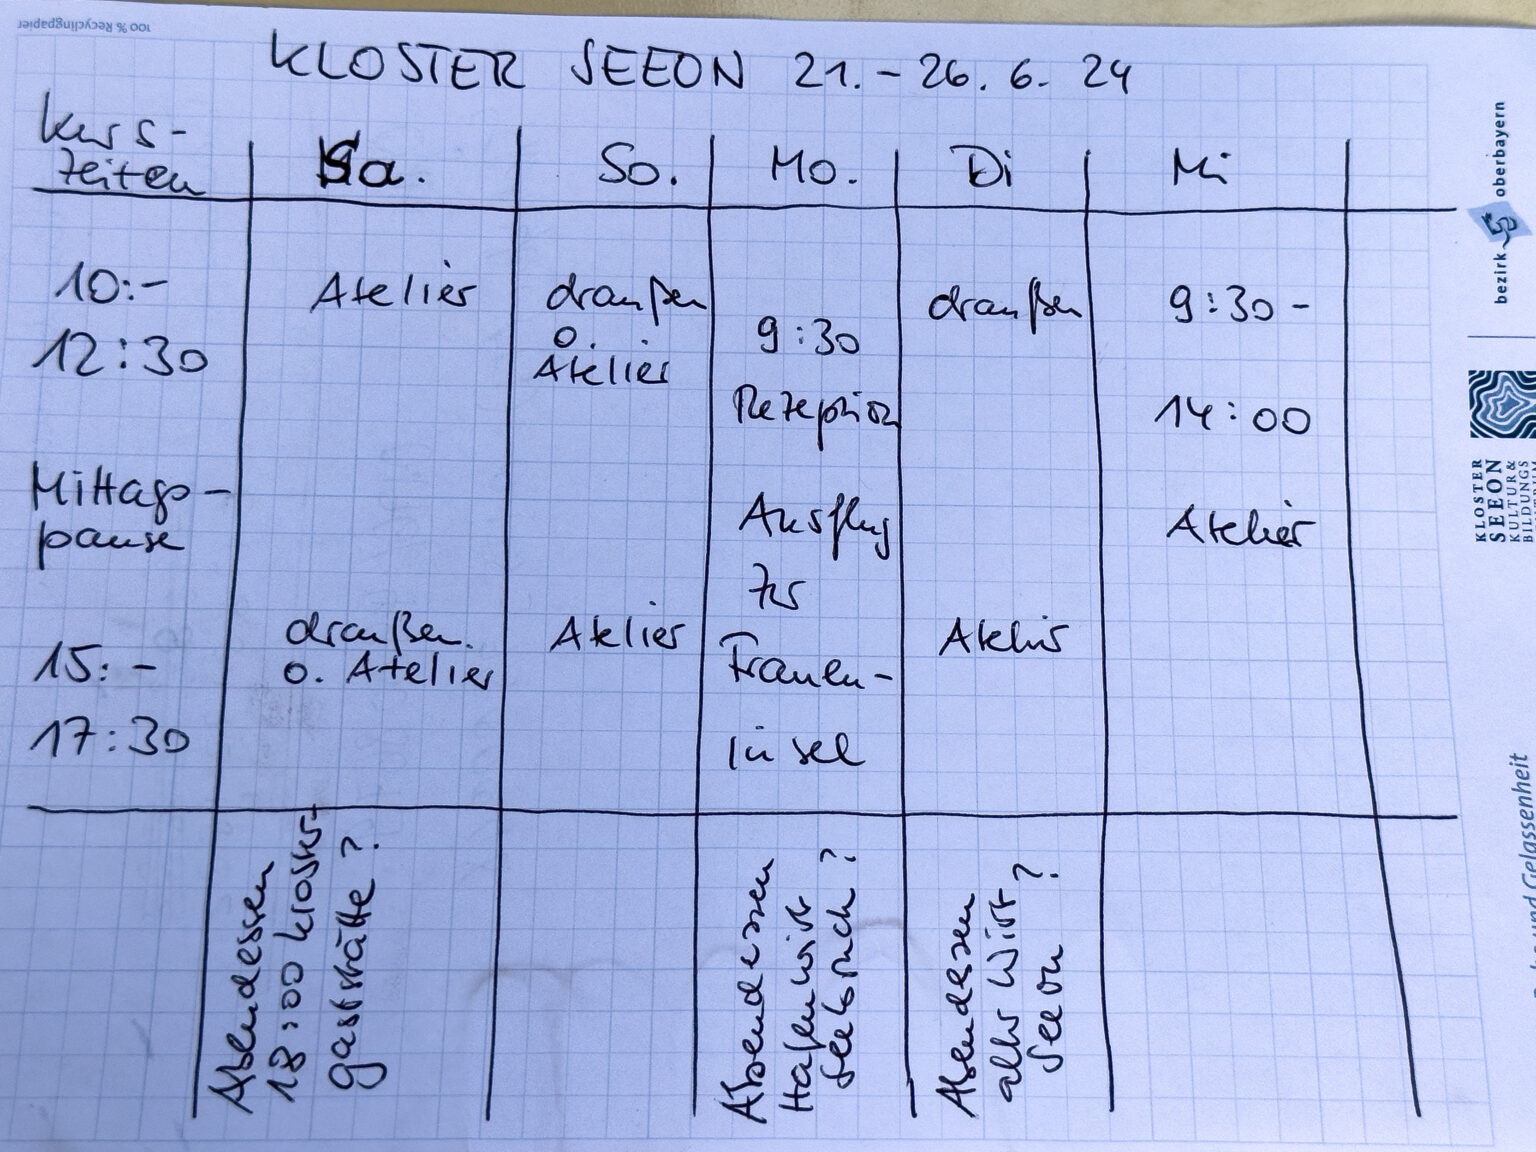 100 % Recyclingpapier
KLOSTER SEEON 21. - 26. 6. 24
Kurs-
zeiten
Sa.
So.
Mo.
Di
Mi
10:-
12:30
Atelier
draußen
o.
Atelier
9:30
Rezeption
draußen
9:30 -
14:00
Mittags-
pause
Ausflug
zur
Atelier
15: -
17:30
draußen
o. Atelier
Atelier
Frauen-
insel
Atelier
Abendessen
18:00 Kloster-
gaststätte ?
Abendessen
Hafenwirt
Seebruck ?
Abendessen
alter Wirt ?
Seeon
bezirk oberbayern
KLOSTER
SEEON
KULTUR &
BILDUNGS
und Gelassenheit